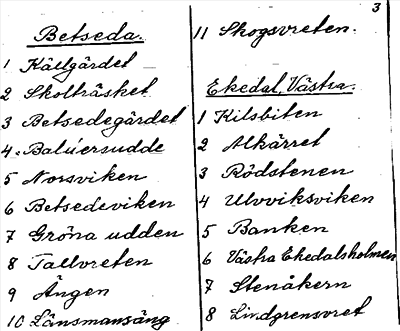 3
Betseda.
1 Källgärdet
2 Skolträsket
3 Betsedegärdet
4. Baluersudde
5 Norsviken
6 Betsedeviken
7 Gröna udden
8 Tallvreten
9 Ängen
10 Länsmansäng
11 Skogsvreten.
Ekedal, Västra.
1 Kilsbiten
2 Alkärret
3 Rödstenen
4 Ulvviksviken
5 Banken
6 Västra Ekedalsholmen
7 Stenåkern
8 Lindgrensvret